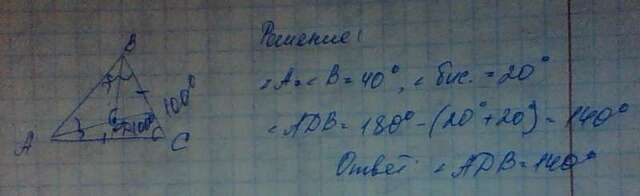 Решение:
B
∠A=∠B=40°, ∠бис.=20°
100°
∠ADB=180°-(20°+20°)=140°
A
100°
C
Ответ: ∠ADB=140°